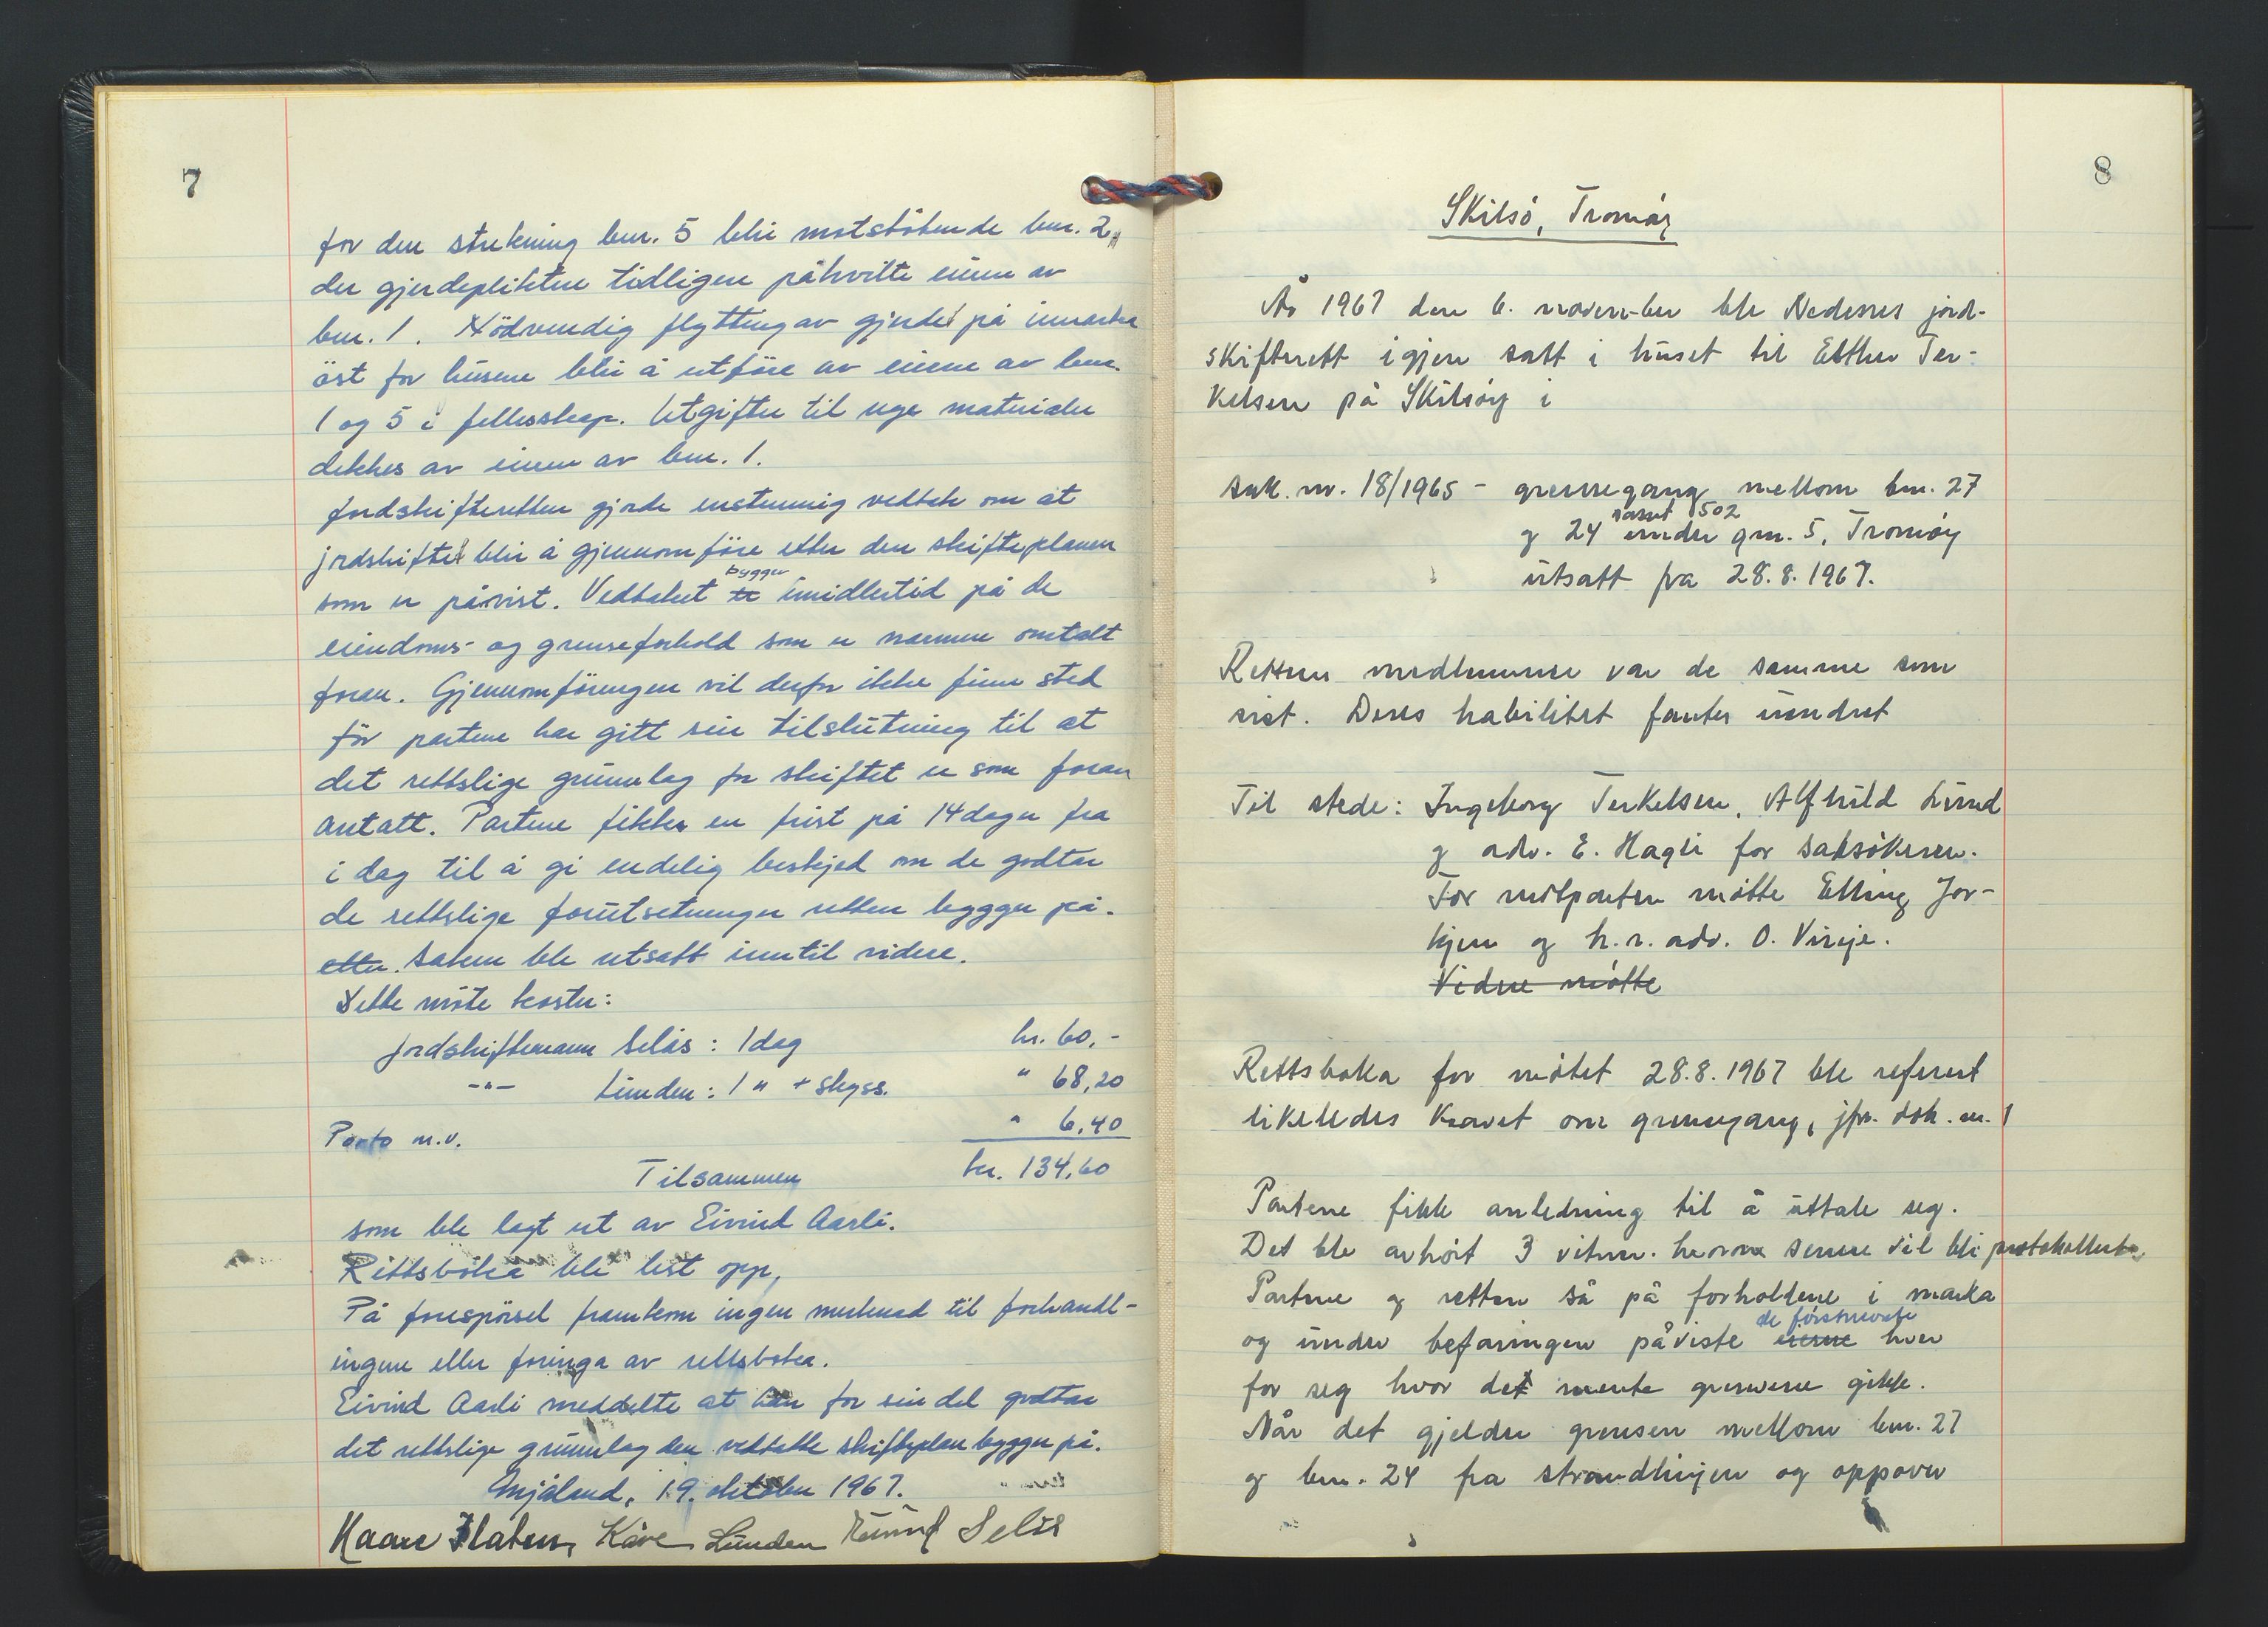 7
for den strekning bnr. 5 blir motstötende bnr. 2,
der gjerdeplikten tidligere påhvilte eieren av
bnr. 1. Nödvendig flytting av gjerdet på innmarka
öst for husene blir å utföre av eierne av bnr.
1 og 5 i fellesskap. Utgifter til nye materialer
dekkes av eieren av bnr. 1.
Jordskifteretten gjorde enstemmig vedtak om at
jordskiftet blir å gjennomföre etter den skifteplanen
som er påvist. Vedtaket er bygger imidlertid på de
eiendoms- og grenseforhold som er nærmere omtalt
foran. Gjennomföringen vil derfor ikke finne sted
för partene har gitt sin tilslutning til at
det rettslige grunnlag for skiftet er som foran
antatt. Partene fikk en frist på 14 dager fra
i dag til å gi endelig beskjed om de godtar
de rettslige forutsetninger retten bygger på.
etter. Saken ble utsatt inntil videre.
Dette möte koster:
Jordskiftemann Selås: 1 dag kr. 60,-
-"- Lunden: 1 " + skyss. " 68,20
Porto m.v. " 6,40
Tilsammen kr. 134,60
som ble lagt ut av Eivind Aasli.
Rettsboka ble lest opp,
På forespörsel framkom ingen merknad til forhandl-
ingene eller föringa av rettsboka.
Eivind Aasli meddelte at han for sin del godtar
det rettslige grunnlag den vedtatte skifteplan bygger på.
Mjåland, 19. oktober 1967.
Haave Kåre Lunden Selås
8
Skilsö, Tromöy
År 1967 den 6. november ble Nedenes jord-
skifterett igjen satt i huset til Esther Ter-
kelsen på Skilsöy i
sak. nr. 18/1965 - grensegang mellom bnr. 27
og 24 samt 502 under gnr. 5, Tromöy
utsatt fra 28.8.1967.
Rettens medlemmer var de samme som
sist. Deres habilitet fantes uendret
Til stede: Ingeborg Terkelsen, Alfhild Lund
og adv. E. Hagli for saksökeren.
For motparten mötte Elling Jor-
kjen og h.r. adv. O. Vireje.
Videre mötte
Rettsboka for mötet 28.8.1967 ble referert
likeledes kravet om grensegang, jfr. dok. nr. 1
Partene fikk anledning til å uttale seg.
Det ble avhört 3 vitner. senere vil bli protokollert.
Partene og retten så på forholdene i marka
og under befaringen påviste eierne de förstnevnte hver
for seg hvor det mente grensene gikk.
Når det gjelder grensen mellom bnr. 27
og bnr. 24 fra strandlinjen og oppover